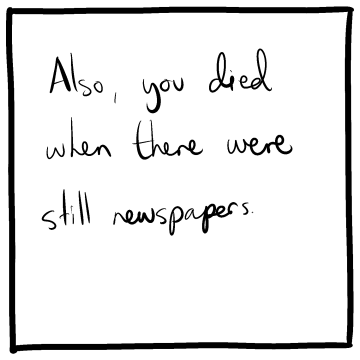 Also, you died
when there were
still newspapers.